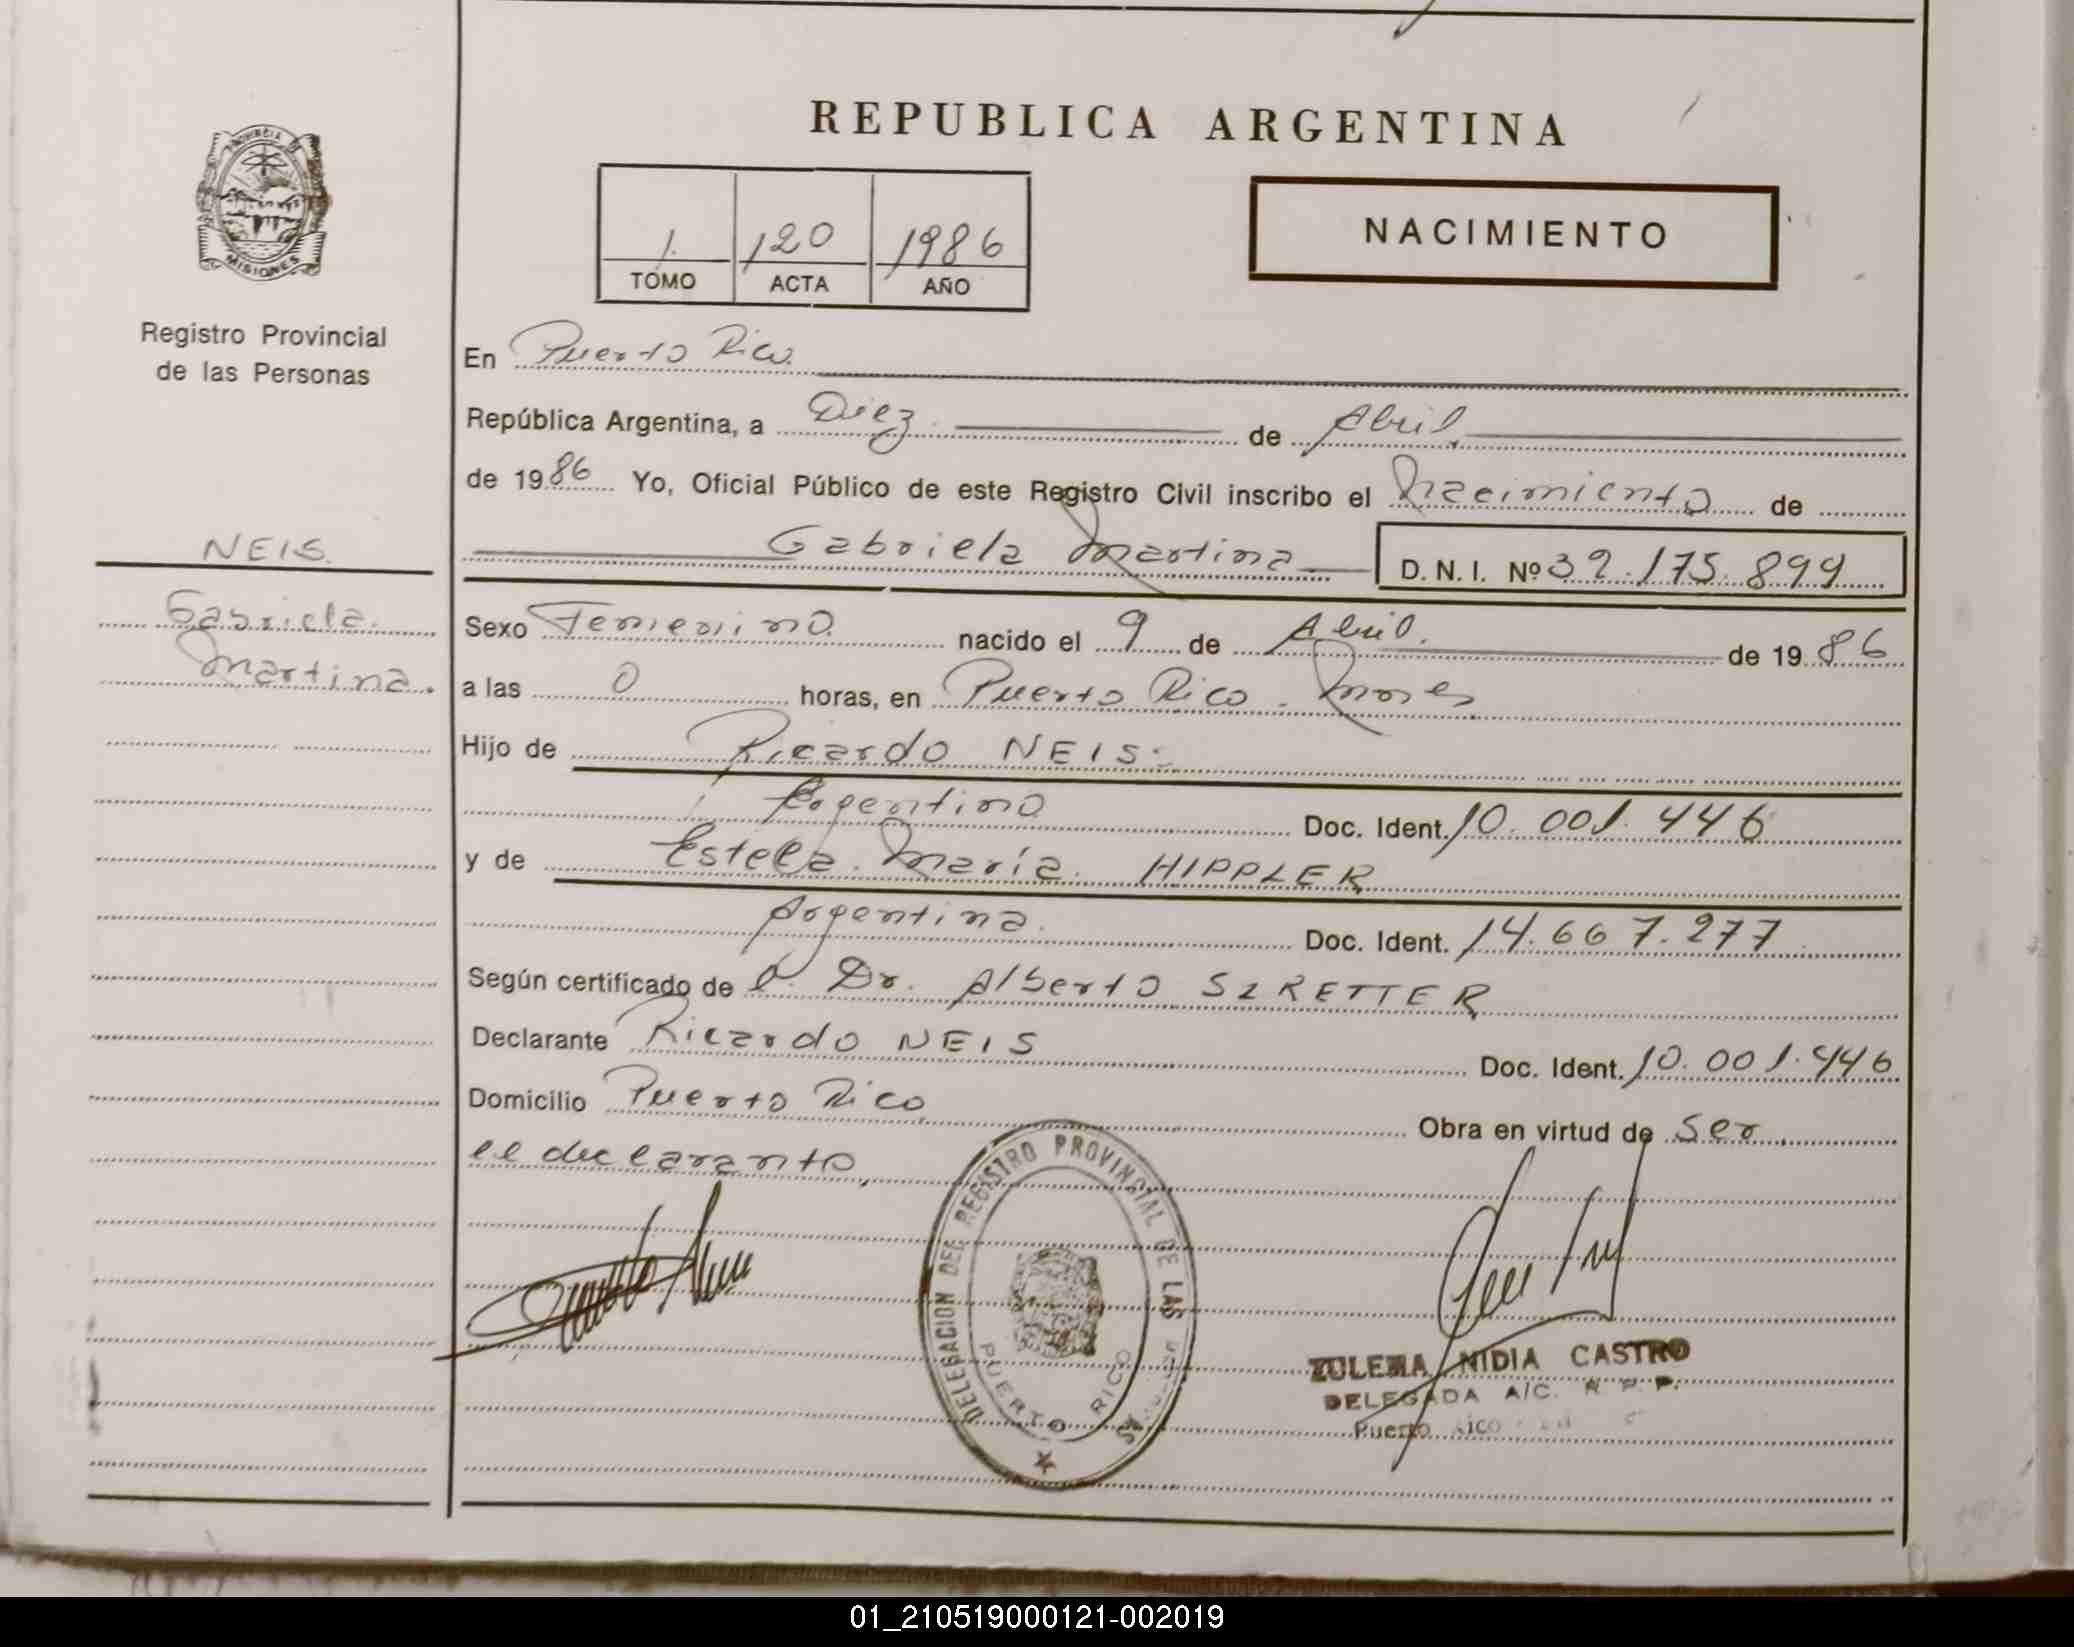 REPUBLICA ARGENTINA
PROVINCIA
MISIONES
Registro Provincial
de las Personas
1. 120 1986
TOMO ACTA AÑO
NACIMIENTO
En Puerto Rico.
República Argentina, a Diez. de Abril.
de 1986 Yo, Oficial Público de este Registro Civil inscribo el Nacimiento de
NEIS.
Gabriela Martina D. N. I. Nº 32.175.899
Gabriela
Martina.
Sexo Femenino. nacido el 9 de Abril. de 1986
a las 0 horas, en Puerto Rico - Mnes
Hijo de Ricardo NEIS.
Argentino Doc. Ident. 10.001.446
y de Estela María HIPPLER
Argentina. Doc. Ident. 14.667.277
Según certificado de l. Dr. Alberto SZRETTER
Declarante Ricardo NEIS Doc. Ident. 10.001.446
Domicilio Puerto Rico Obra en virtud de ser
el declarante
DELEGACION DEL REGISTRO PROVINCIAL DE LAS
PUERTO RICO
ZULEMA NIDIA CASTRO
DELEGADA A/C. R. P. P.
Puerto Rico
01_210519000121-002019